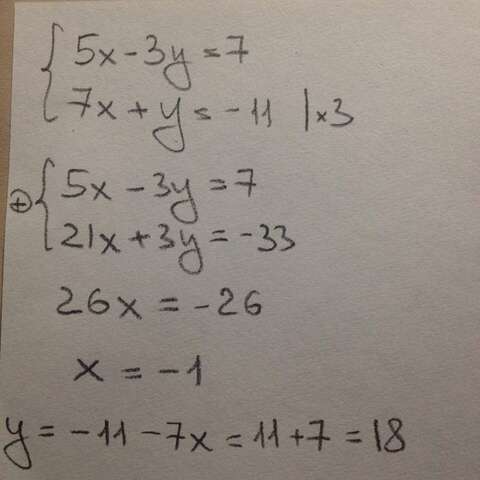 { 5x - 3y = 7
7x + y = -11 | x3
⊕ { 5x - 3y = 7
21x + 3y = -33
26x = -26
x = -1
y = -11 - 7x = 11 + 7 = 18